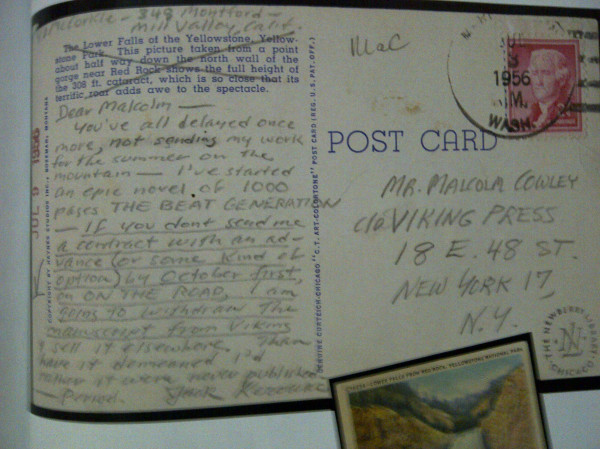 McClintock - 349 Montford -
Mill Valley, Calif.
The Lower Falls of the Yellowstone, Yellow-
stone Park. This picture taken from a point
about half way down the north wall of the
gorge near Red Rock shows the full height of
the 308 ft. cataract, which is so close that its
terrific roar adds awe to the spectacle.
Dear Malcolm —
You've all delayed once
more, not sending my work
for the summer on the
mountain — I've started
an epic novel of 1000
pages THE BEAT GENERATION
— If you dont send me
a contract with an ad-
vance (or some kind of
option) by October first,
on ON THE ROAD, I am
going to withdraw the
manuscript from Viking
& sell it elsewhere. Than
have it demeaned I'd
rather it were never published
— Period. Jack Kerouac
JUL 9 1956
COPYRIGHT BY HAYNES STUDIOS INC., BOZEMAN, MONTANA
GENUINE CURTEICH-CHICAGO "C.T. ART-COLORTONE" POST CARD (REG. U.S. PAT. OFF.)
MaC
1956
WASH.
POST CARD
MR. MALCOLM COWLEY
c/o VIKING PRESS
18 E. 48 ST.
NEW YORK 17,
N.Y.
THE NEWBERRY LIBRARY
CHICAGO
LOWER FALLS FROM RED ROCK, YELLOWSTONE NATIONAL PARK